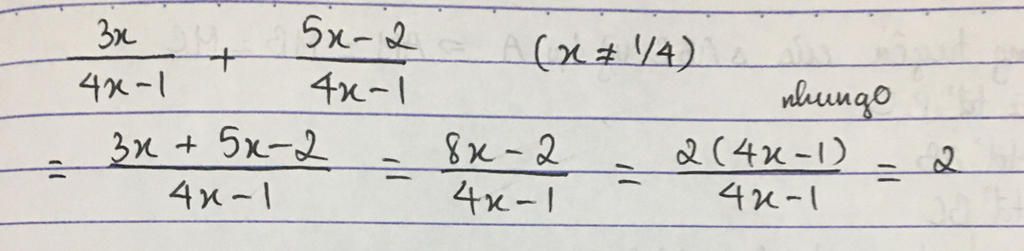 3x/(4x-1) + (5x-2)/(4x-1) (x ≠ 1/4)
nhungo
= (3x + 5x-2)/(4x-1) = (8x-2)/(4x-1) = 2(4x-1)/(4x-1) = 2